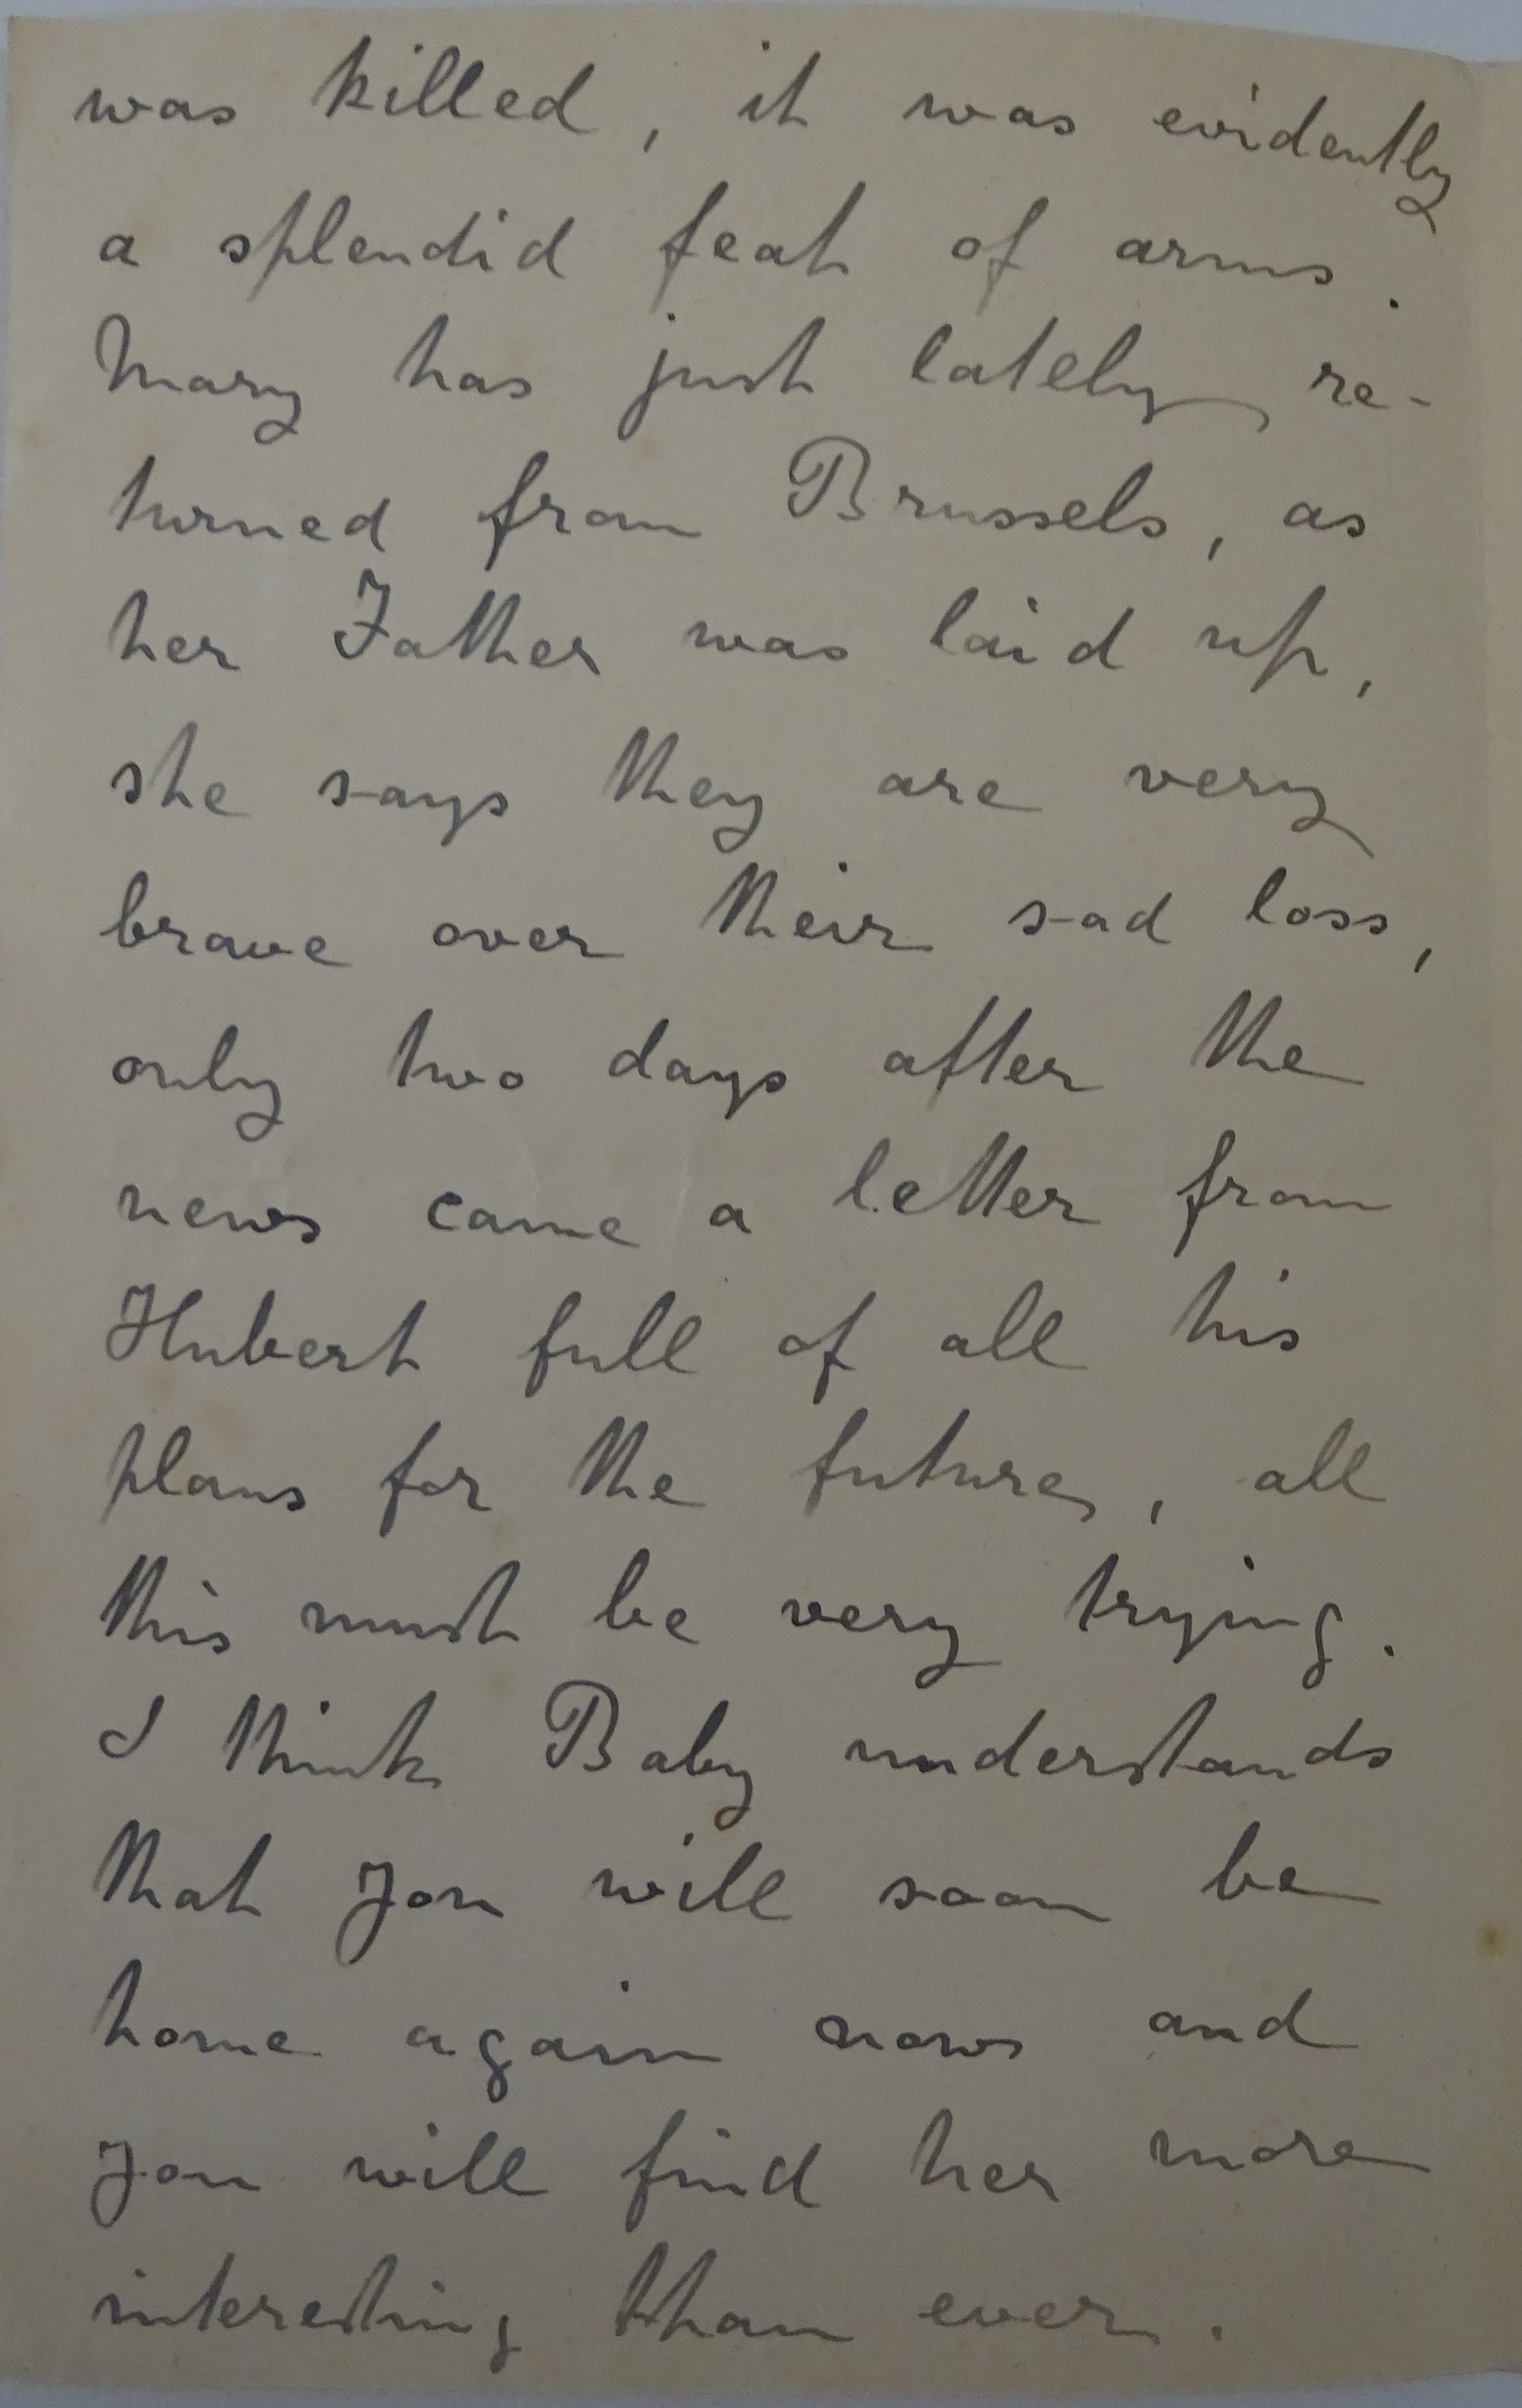 was killed, it was evidently
a splendid feat of arms.
Mary has just lately re-
turned from Brussels, as
her Father was laid up,
she says they are very
brave over their sad loss,
only two days after the
news came a letter from
Hubert full of all his
plans for the future, all
this must be very trying.
I think Baby understands
that you will soon be
home again now and
you will find her more
interesting than ever.